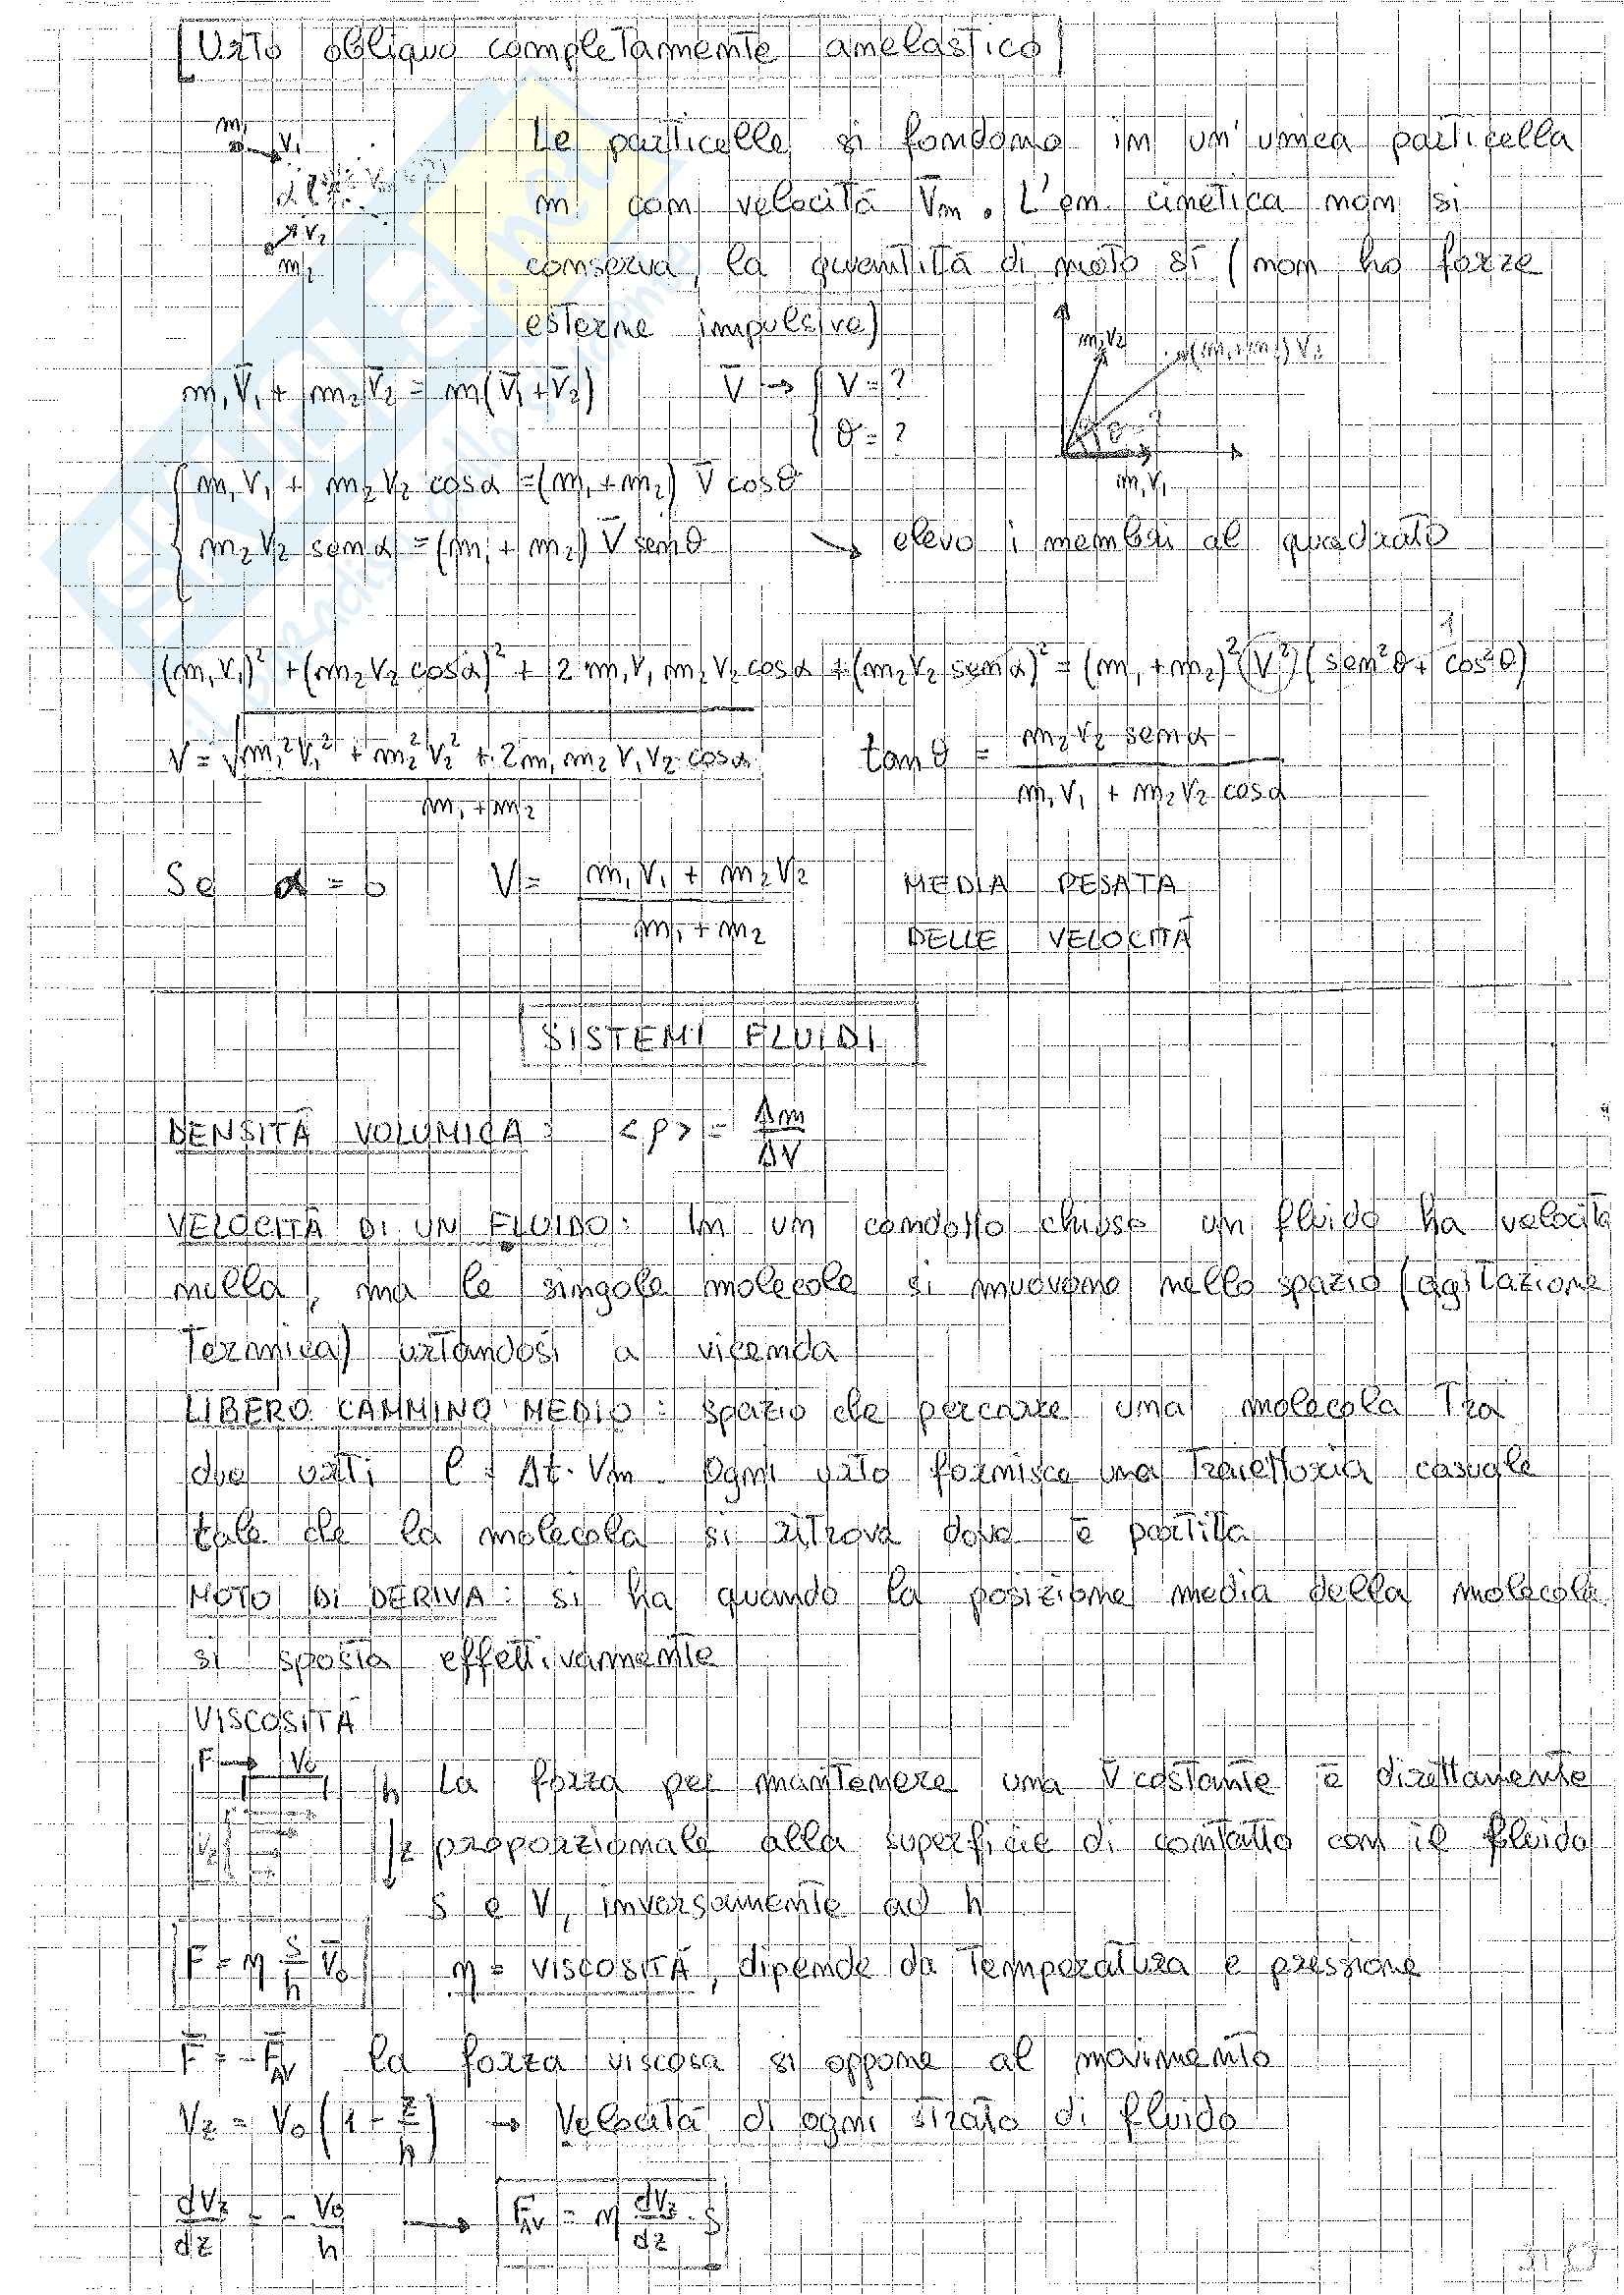 Urto obliquo completamente anelastico
m₁ v₁
Le particelle si fondono in un'unica particella
m con velocità v̄m. L'en. cinetica non si
α
v₂
m₂
conserva, la quantità di moto sì (non ho forze
esterne impulsive)
m₂v₂
(m₁+m₂)v₃
m₁v̄₁ + m₂v̄₂ = m(v̄₁+v̄₂)
v̄ → { v = ?
θ = ?
θ = ?
m₁v₁
{ m₁v₁ + m₂v₂ cosα = (m₁+m₂) v̄ cosθ
m₂v₂ senα = (m₁+m₂) v̄ senθ → elevo i membri al quadrato
1
(m₁v₁)² + (m₂v₂ cosα)² + 2 m₁v₁ m₂v₂ cosα + (m₂v₂ senα)² = (m₁+m₂)² (v²) (sen²θ + cos²θ)
v = √(m₁²v₁² + m₂²v₂² + 2m₁m₂v₁v₂ cosα) / (m₁+m₂)   tanθ = m₂v₂ senα / (m₁v₁ + m₂v₂ cosα)
Se α = 0   v = (m₁v₁ + m₂v₂) / (m₁+m₂)   MEDIA PESATA
DELLE VELOCITÀ
SISTEMI FLUIDI
DENSITÀ VOLUMICA: <ρ> = Δm/ΔV
VELOCITÀ DI UN FLUIDO: In un condotto chiuso un fluido ha velocità
nulla, ma le singole molecole si muovono nello spazio (agitazione
termica) urtandosi a vicenda
LIBERO CAMMINO MEDIO: spazio che percorre una molecola tra
due urti l = Δt · vm. Ogni urto fornisce una traiettoria casuale
tale che la molecola si ritrova dove è partita
MOTO DI DERIVA: si ha quando la posizione media della molecola
si sposta effettivamente
VISCOSITÀ
F → v₀
h
La forza per mantenere una v̄ costante è direttamente
vz
z
proporzionale alla superficie di contatto con il fluido
S e V, inversamente ad h
F = η S/h v̄₀   η = VISCOSITÀ, dipende da temperatura e pressione
F̄ = -F̄AV   la forza viscosa si oppone al movimento
vz = v₀ (1 - z/h) → Velocità di ogni strato di fluido
dvz/dz = - v₀/h → FAV = η dvz/dz · S